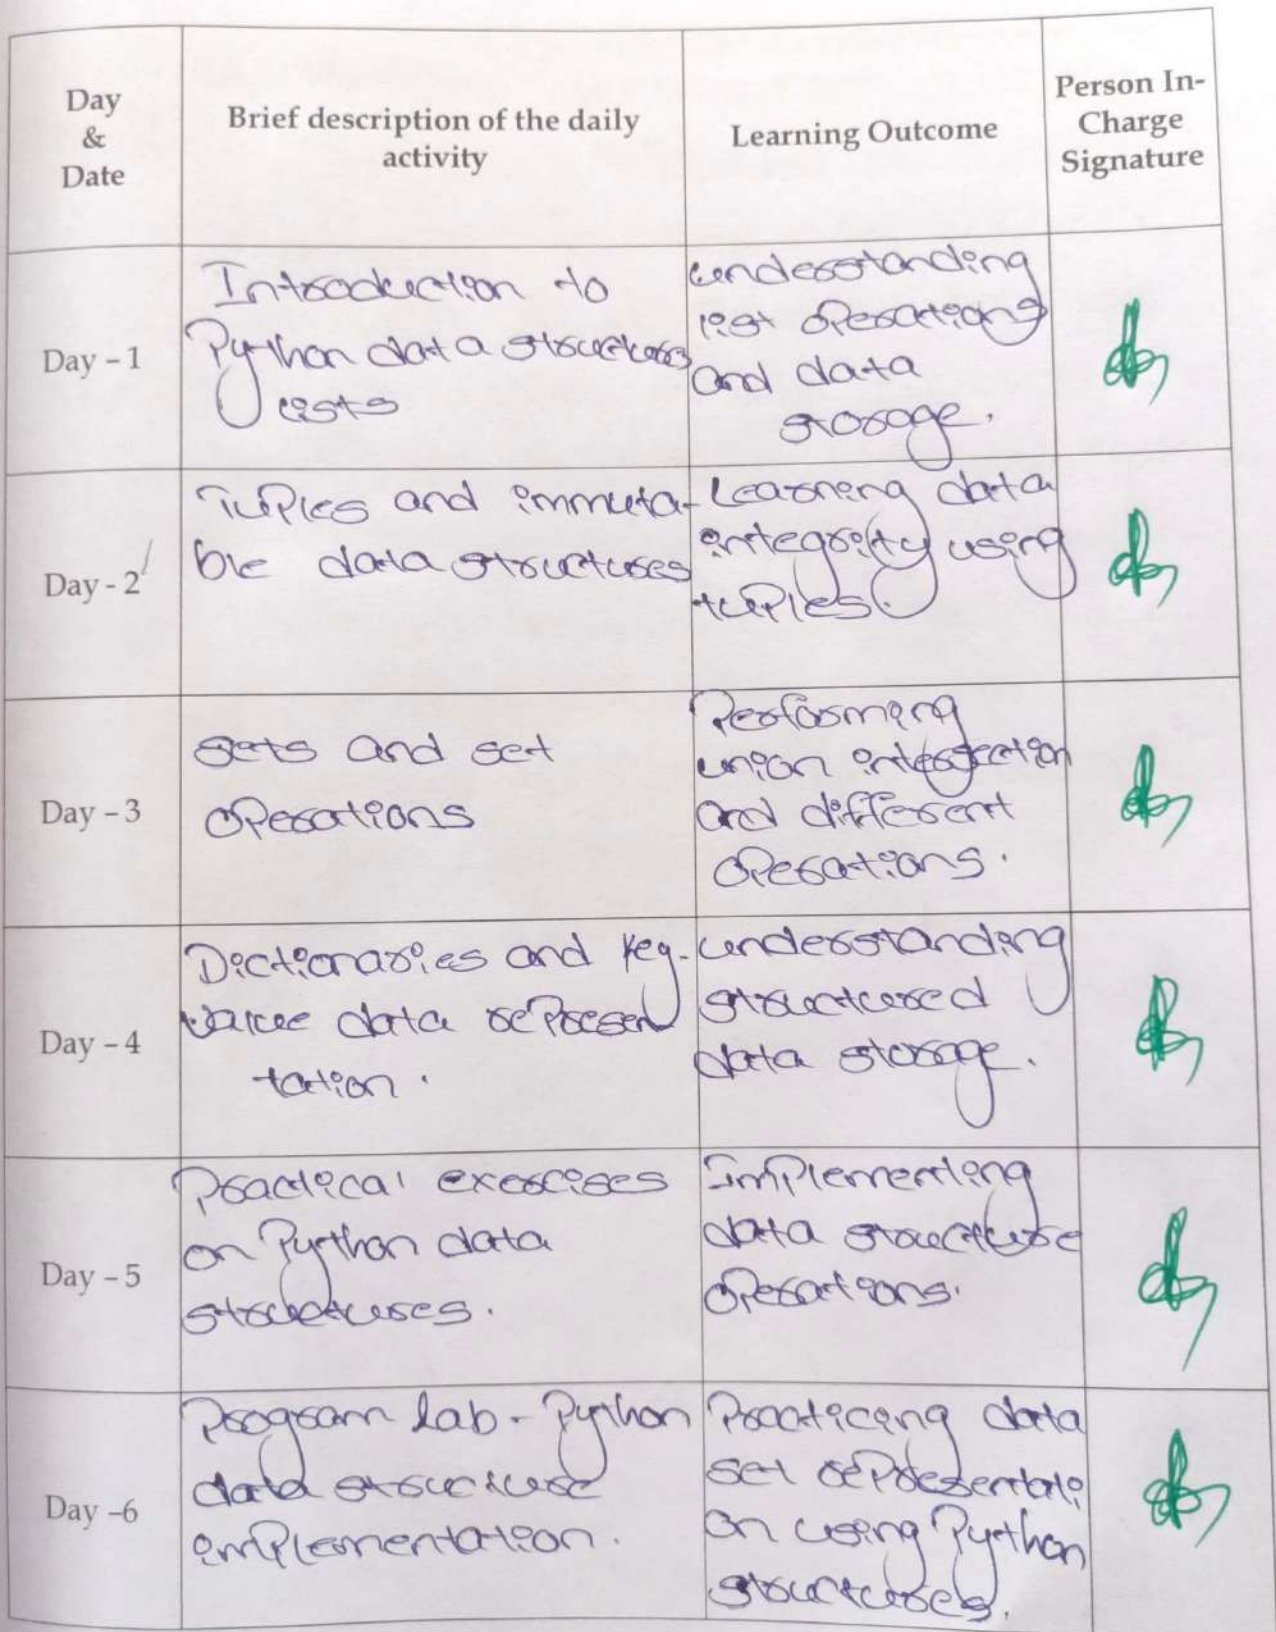 Day
&
Date
Brief description of the daily
activity
Learning Outcome
Person In-
Charge
Signature
Day – 1
Introduction to
Python data structures
lists
understanding
list operations
and data
storage.
Day - 2
Tuples and immuta-
ble data structures
Learning data
integrity using
tuples.
Day – 3
sets and set
operations
Performing
union intersection
and different
operations.
Day – 4
Dictionaries and key-
value data represen
tation.
understanding
structured
data storage.
Day – 5
Practical exercises
on Python data
structures.
Implementing
data structure
operations.
Day –6
Program Lab - Python
data structure
implementation.
Practicing data
set representati
on using Python
structures.